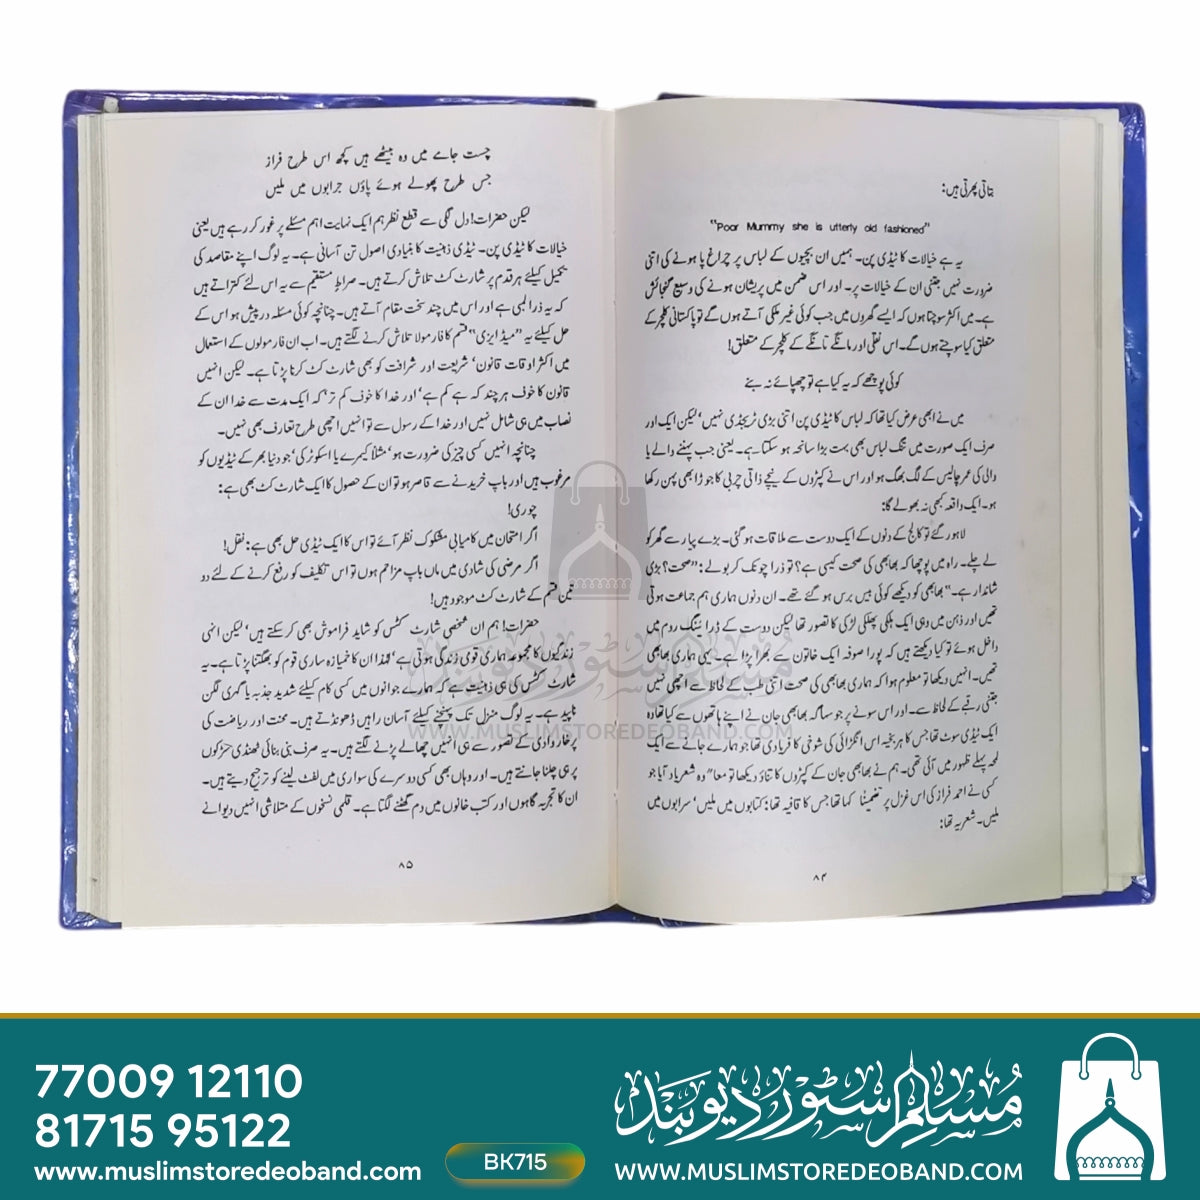 بتاتی پھرتی ہیں:
"Poor Mummy she is utterly old fashioned"
یہ ہے خیالات کا ٹیڈی پن۔ ہمیں ان بچیوں کے لباس پر چراغ پا ہونے کی اتنی
ضرورت نہیں جتنی ان کے خیالات پر۔ اور اس ضمن میں پریشان ہونے کی وسیع گنجائش
ہے۔ میں اکثر سوچتا ہوں کہ ایسے گھروں میں جب کوئی غیر ملکی آتے ہوں گے تو پاکستانی کلچر کے
متعلق کیا سوچتے ہوں گے۔ اس نقلی اور مانگے تانگے کے کلچر کے متعلق!
کوئی پوچھے کہ یہ کیا ہے تو چھپائے نہ بنے
میں نے ابھی عرض کیا تھا کہ لباس کا ٹیڈی پن اتنی بڑی ٹریجڈی نہیں، لیکن ایک اور
صرف ایک صورت میں تنگ لباس بھی بہت بڑا سانحہ ہو سکتا ہے۔ یعنی جب پہننے والے یا
والی کی عمر چالیس کے لگ بھگ ہو اور اس نے کپڑوں کے نیچے ذاتی چربی کا جوڑا بھی پہن رکھا
ہو۔ ایک واقعہ کبھی نہ بھولے گا:
لاہور گئے تو کالج کے دنوں کے ایک دوست سے ملاقات ہو گئی۔ بڑے پیار سے گھر کو
لے چلے۔ راہ میں پوچھا کہ بھابھی کی صحت کیسی ہے؟ تو ذرا چونک کر بولے: "صحت؟ بڑی
شاندار ہے۔" بھابھی کو دیکھے کوئی بیس برس ہو گئے تھے۔ ان دنوں ہماری ہم جماعت ہوتی
تھیں اور ذہن میں وہی ایک ہلکی پھلکی لڑکی کا تصور تھا لیکن دوست کے ڈرائنگ روم میں
داخل ہوئے تو کیا دیکھتے ہیں کہ پورا صوفہ ایک خاتون سے بھرا پڑا ہے۔ یہی ہماری بھابھی
تھیں۔ انہیں دیکھا تو معلوم ہوا کہ ہماری بھابھی کی صحت اتنی طب کے لحاظ سے اچھی نہیں
جتنی رقبے کے لحاظ سے۔ اور اس سونے پر جو سہاگہ بھابھی جان نے اپنے ہاتھوں سے کیا تھا وہ
ایک ٹیڈی سوٹ تھا جس کا ہر بخیہ اس انگڑائی کی شوخی کا فریادی تھا جو ہمارے جانے سے ایک
لمحہ پہلے ظہور میں آئی تھی۔ ہم نے بھابھی جان کے کپڑوں کا تناؤ دیکھا تو معاً وہ شعر یاد آیا جو
کسی نے احمد فراز کی اس غزل پر تضمیناً کہا تھا جس کا قافیہ تھا: کتابوں میں ملیں، سرابوں میں
ملیں۔ شعر یہ تھا:
۸۴
چست جامے میں وہ بیٹھے ہیں کچھ اس طرح فراز
جس طرح پھولے ہوئے پاؤں جرابوں میں ملیں
لیکن حضرات! دل لگی سے قطع نظر ہم ایک نہایت اہم مسئلے پر غور کر رہے ہیں یعنی
خیالات کا ٹیڈی پن۔ ٹیڈی ذہنیت کا بنیادی اصول تن آسانی ہے۔ یہ لوگ اپنے مقاصد کی
تکمیل کیلئے ہر قدم پر شارٹ کٹ تلاش کرتے ہیں۔ صراط مستقیم سے یہ اس لئے کتراتے ہیں
کہ یہ ذرا لمبی ہے اور اس میں چند سخت مقام آتے ہیں۔ چنانچہ کوئی مسئلہ درپیش ہو اس کے
حل کیلئے یہ "میڈ ایزی" قسم کا فارمولا تلاش کرنے لگتے ہیں۔ اب ان فارمولوں کے استعمال
میں اکثر اوقات قانون، شریعت اور شرافت کو بھی شارٹ کٹ کرنا پڑتا ہے۔ لیکن انہیں
قانون کا خوف ہر چند کہ ہے کم ہے، اور خدا کا خوف کم تر، کہ ایک مدت سے خدا ان کے
نصاب میں ہی شامل نہیں اور خدا کے رسول سے تو انہیں اچھی طرح تعارف بھی نہیں۔
چنانچہ انہیں کسی چیز کی ضرورت ہو، مثلاً کیمرے یا اسکوٹر کی، جو دنیا بھر کے ٹیڈیوں کو
مرغوب ہیں اور باپ خریدنے سے قاصر ہو تو ان کے حصول کا ایک شارٹ کٹ بھی ہے:
چوری!
اگر امتحان میں کامیابی مشکوک نظر آئے تو اس کا ایک ٹیڈی حل بھی ہے: نقل!
اگر مرضی کی شادی میں ماں باپ مزاحم ہوں تو اس تکلیف کو رفع کرنے کے لئے دو
تین قسم کے شارٹ کٹ موجود ہیں!
حضرات! ہم ان شخصی شارٹ کٹس کو شاید فراموش بھی کر سکتے ہیں، لیکن انہی
زندگیوں کا مجموعہ ہماری قومی زندگی ہوتی ہے، لہٰذا ان کا خمیازہ ساری قوم کو بھگتنا پڑتا ہے۔ یہ
شارٹ کٹس کی ہی ذہنیت ہے کہ ہمارے جوانوں میں کسی کام کیلئے شدید جذبہ یا گہری لگن
ناپید ہے۔ یہ لوگ منزل تک پہنچنے کیلئے آسان راہیں ڈھونڈتے ہیں۔ محنت اور ریاضت کی
پر خار وادی کے تصور سے ہی انہیں چھالے پڑنے لگتے ہیں۔ یہ صرف بنی بنائی ٹھنڈی سڑکوں
پر ہی چلنا جانتے ہیں۔ اور وہاں بھی کسی دوسرے کی سواری میں لفٹ لینے کو ترجیح دیتے ہیں۔
ان کا تجربہ گاہوں اور کتب خانوں میں دم گھٹنے لگتا ہے۔ قلمی نسخوں کے متلاشی انہیں دیوانے
۸۵
مسلم سٹور دیوبند
WWW.MUSLIMSTOREDEOBAND.COM
77009 12110
81715 95122
www.muslimstoredeoband.com
BK715
مسلم سٹور دیوبند
WWW.MUSLIMSTOREDEOBAND.COM